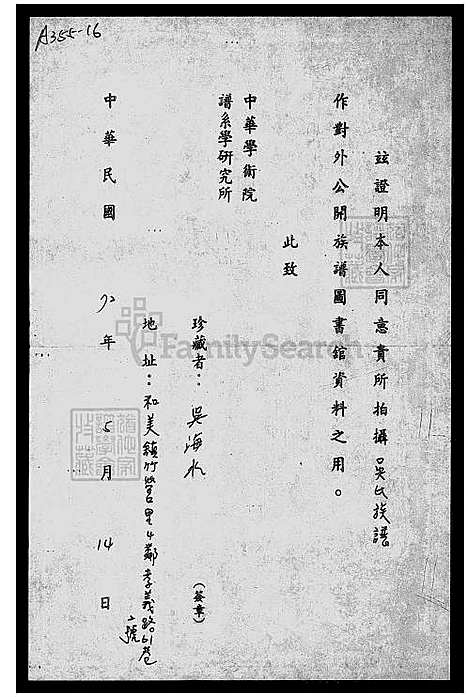 A355-16
茲證明本人同意貴所拍攝吳氏族譜
作對外公開族譜圖書館資料之用。
此致
中華學術院
譜系學研究所
珍藏者：吳海水（簽章）
地址：和美鎮竹營里4鄰孝義路61巷
二號
中華民國72年5月14日
FamilySearch